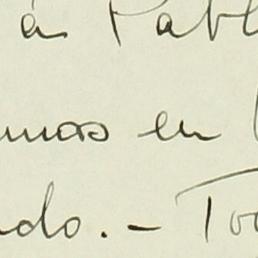 a Pabl
unas en
ndo. – To